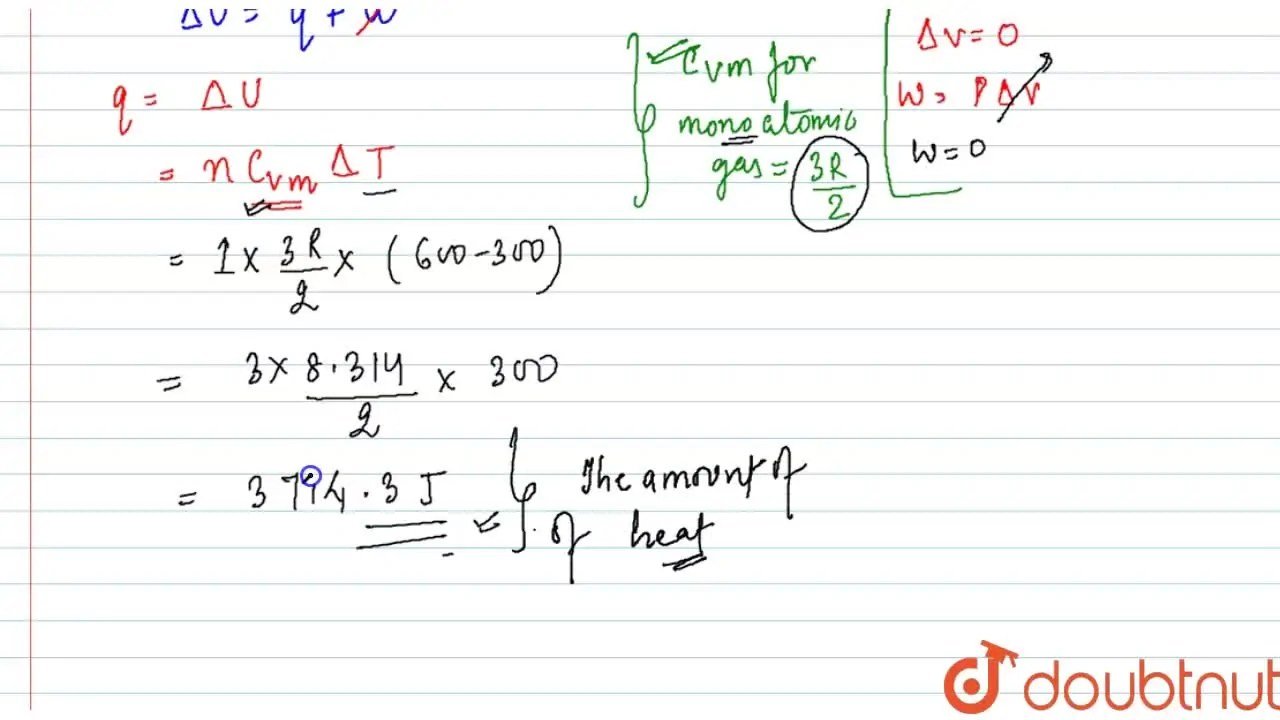 ΔU = q + w
q = ΔU
= n Cvm ΔT
= 1 × 3R/2 × (600-300)
= 3 × 8.314/2 × 300
= 3794.3 J
The amount of
of heat
Cvm for
mono atomic
gas = 3R/2
ΔV = 0
W = PΔV
W = 0
doubtnut